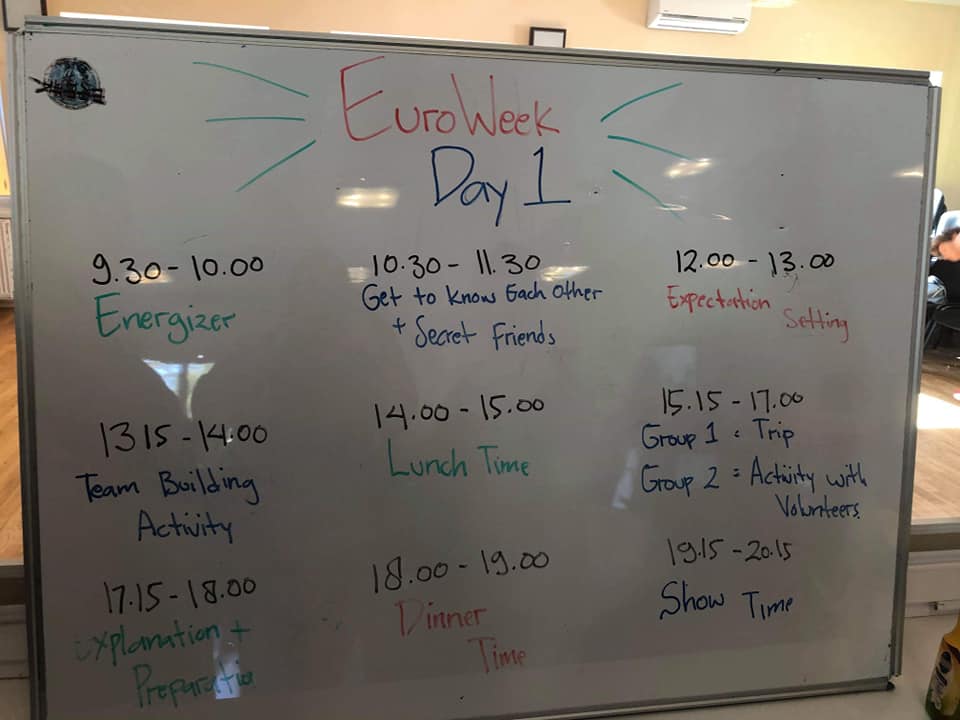 EuroWeek
Day 1
9.30 - 10.00
Energizer
10.30 - 11.30
Get to Know Each Other
+ Secret Friends
12.00 - 13.00
Expectation
Setting
13 15 - 14.00
Team Building
Activity
14.00 - 15.00
Lunch Time
15.15 - 17.00
Group 1 : Trip
Group 2 : Activity with
Volunteers.
17.15 - 18.00
Explanation +
Preparatio
18.00 - 19.00
Dinner
Time
19.15 - 20.15
Show Time